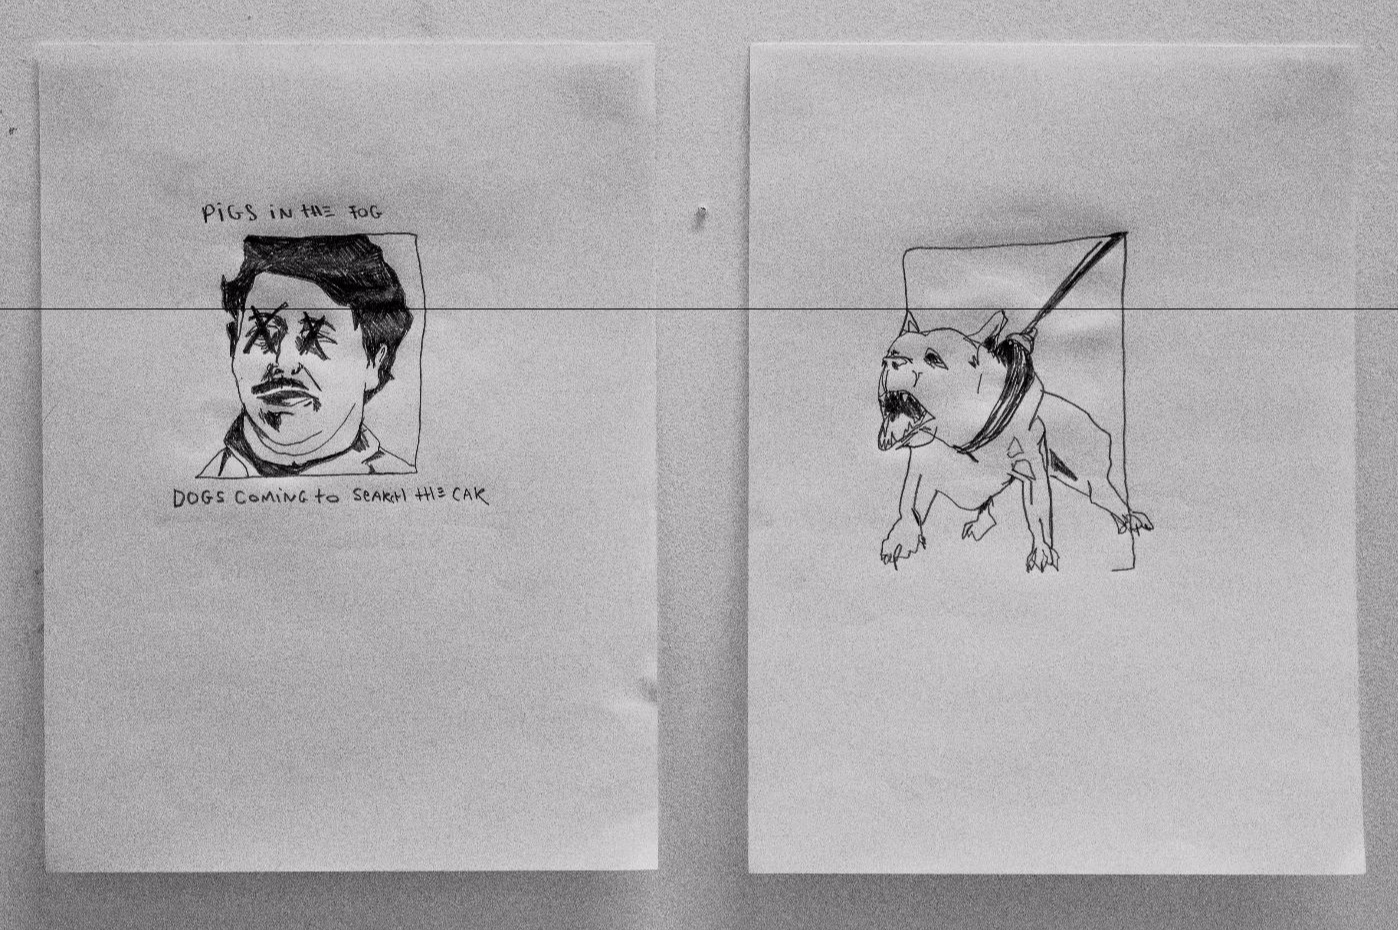 PiGS iN tHE FOG
DOGS COMiNG to SEARCH tHE CAR